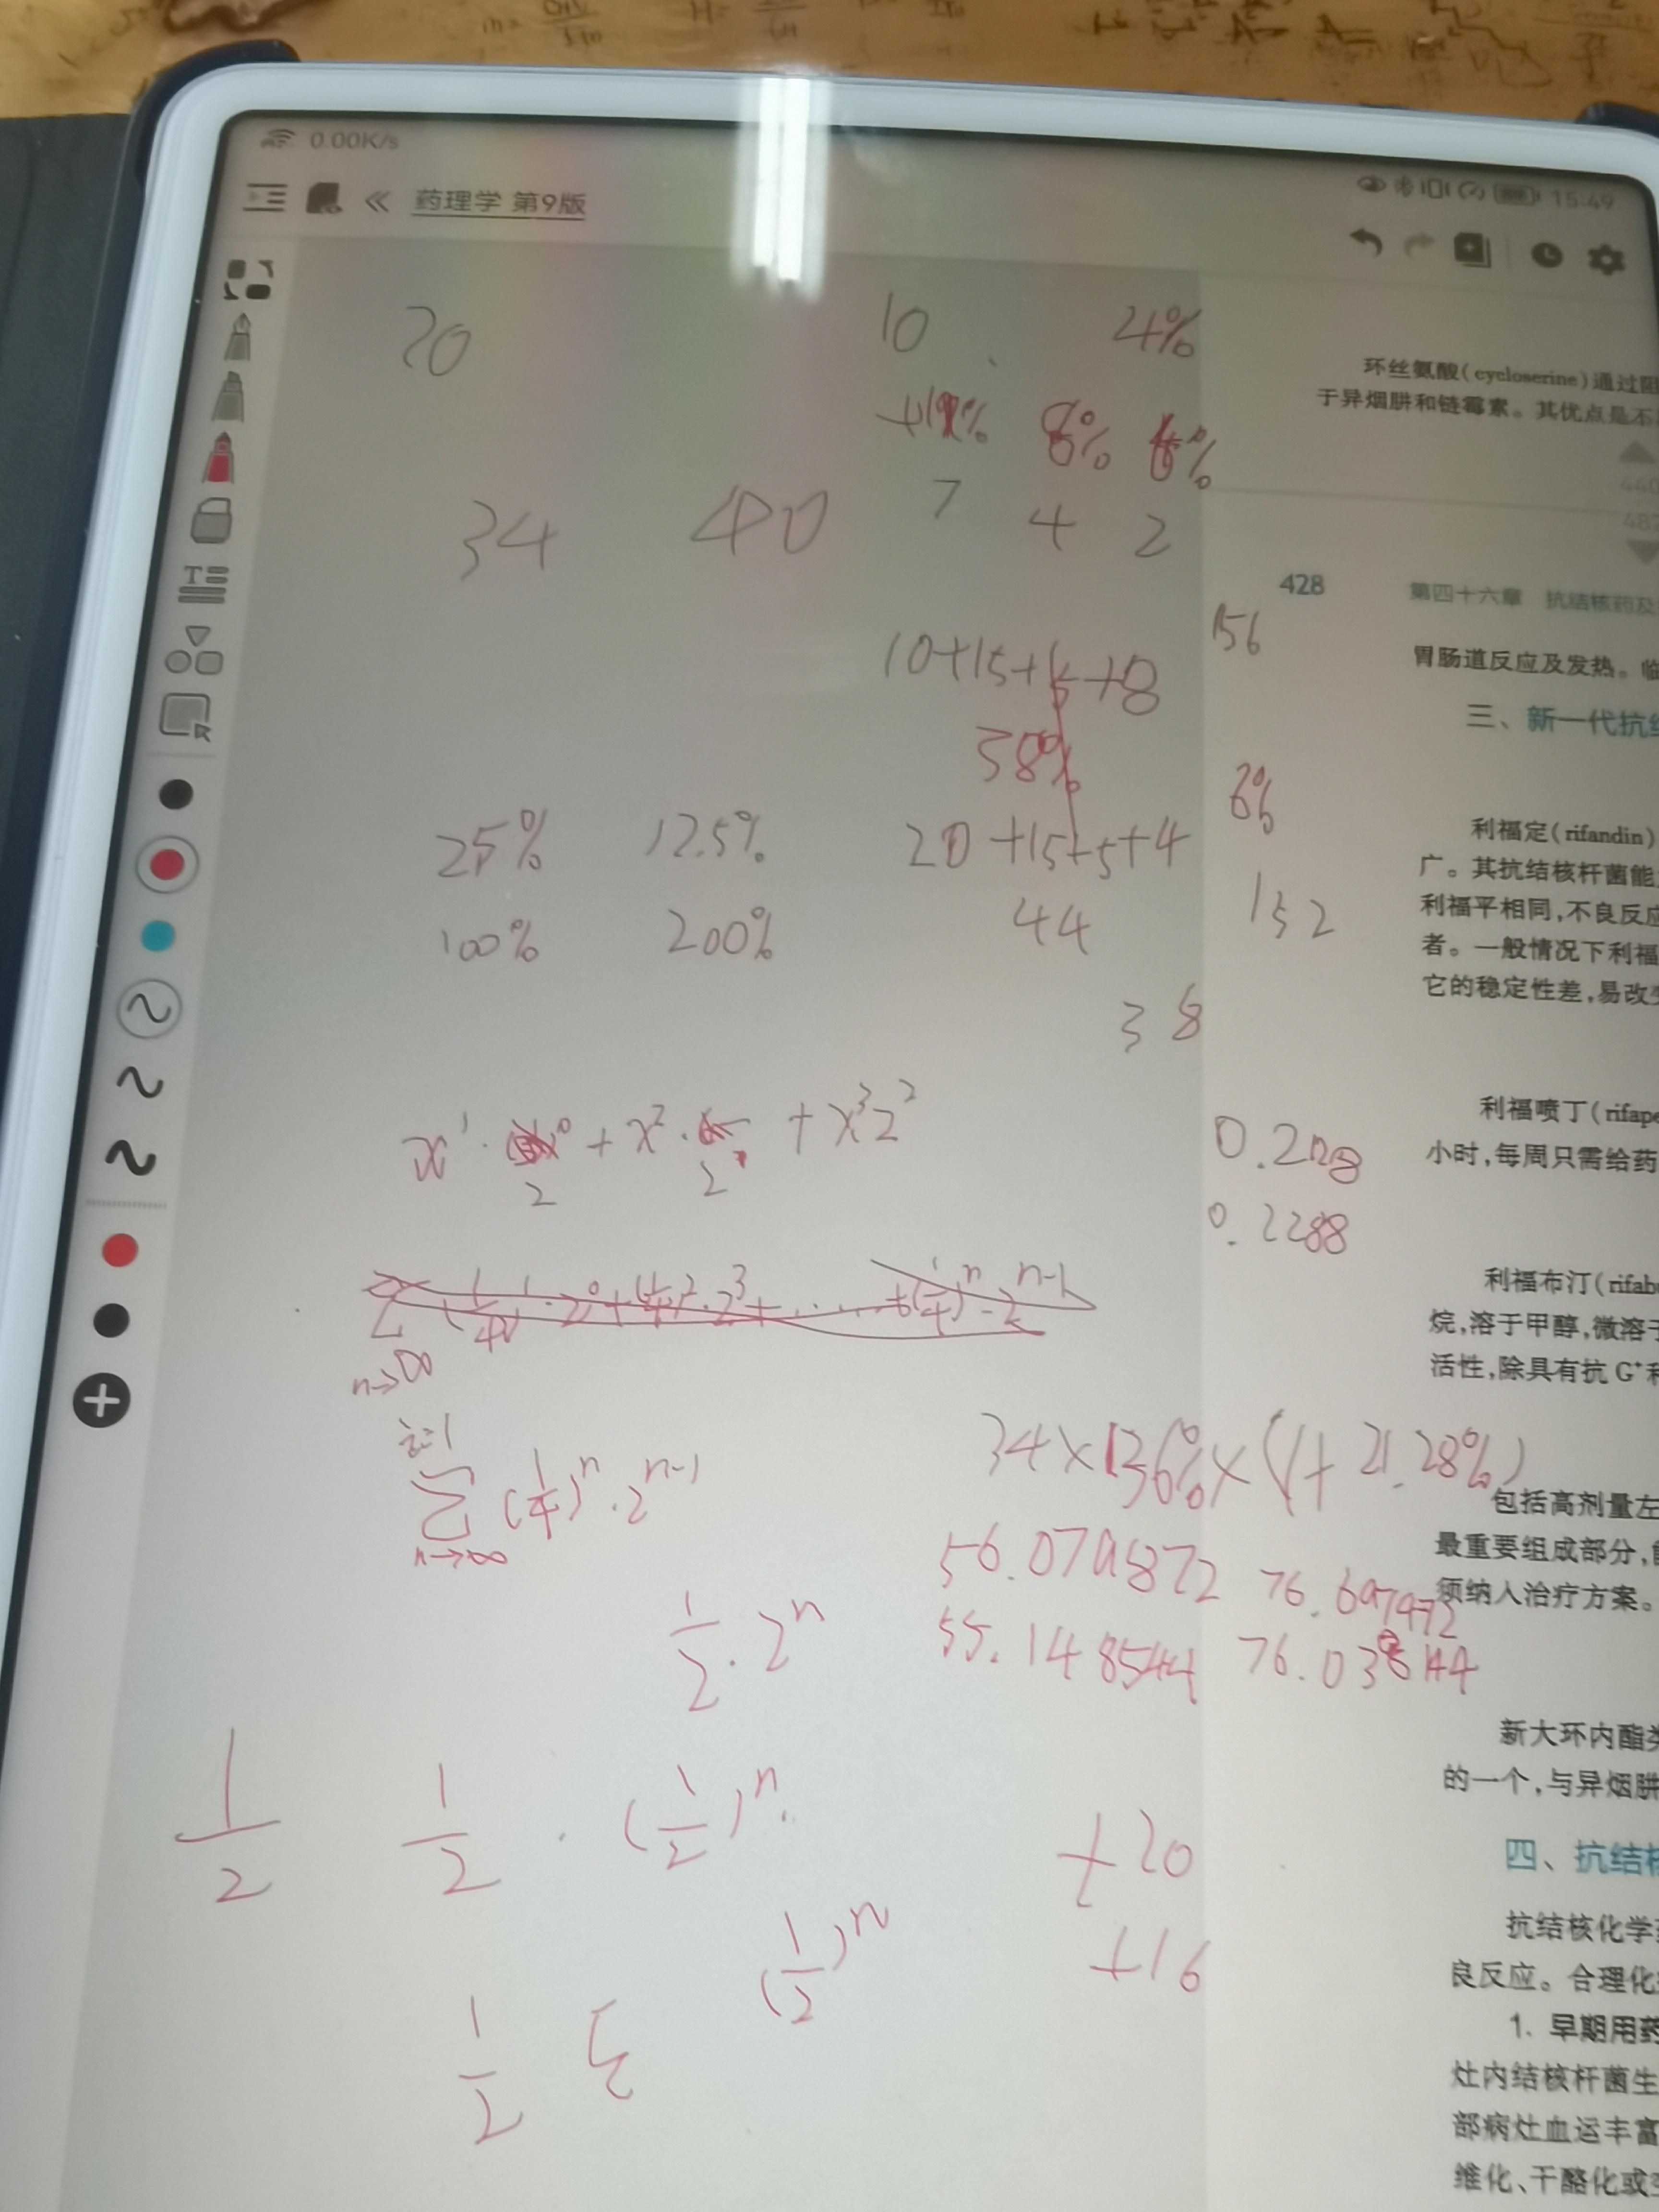 0.00K/s
15:49
药理学 第9版
20 10 4%
8% 6%
34 40 7 4 2
10+15+5+8
38%
25% 12.5% 20+15+5+4
100% 200% 44
38
156
6%
152
x¹· 2⁰ + x²· 2¹ + x³2²
0.2288
n→∞
i=1
∑ (1/4)ⁿ·2ⁿ⁻¹
n→∞
34×136%×(1+21.28%)
56.079872 76.697472
55.148544
1/2·2ⁿ
1/2 1/2·(1/2)ⁿ
+20
(1/2)ⁿ
+16
1/2 ∑
环丝氨酸(cycloserine)通过阻
于异烟肼和链霉素。其优点是不
440
482
428 第四十六章 抗结核药及
胃肠道反应及发热。临
三、新一代抗结
利福定(rifandin)
广。其抗结核杆菌能
利福平相同,不良反应
者。一般情况下利福
它的稳定性差,易改变
利福喷丁(rifape
小时,每周只需给药
利福布汀(rifabu
烷,溶于甲醇,微溶于
活性,除具有抗 G⁺和
包括高剂量左
最重要组成部分,
须纳入治疗方案。
新大环内酯类
的一个,与异烟肼
四、抗结核
抗结核化学药
良反应。合理化
1. 早期用药
灶内结核杆菌生
部病灶血运丰富
维化、干酪化或